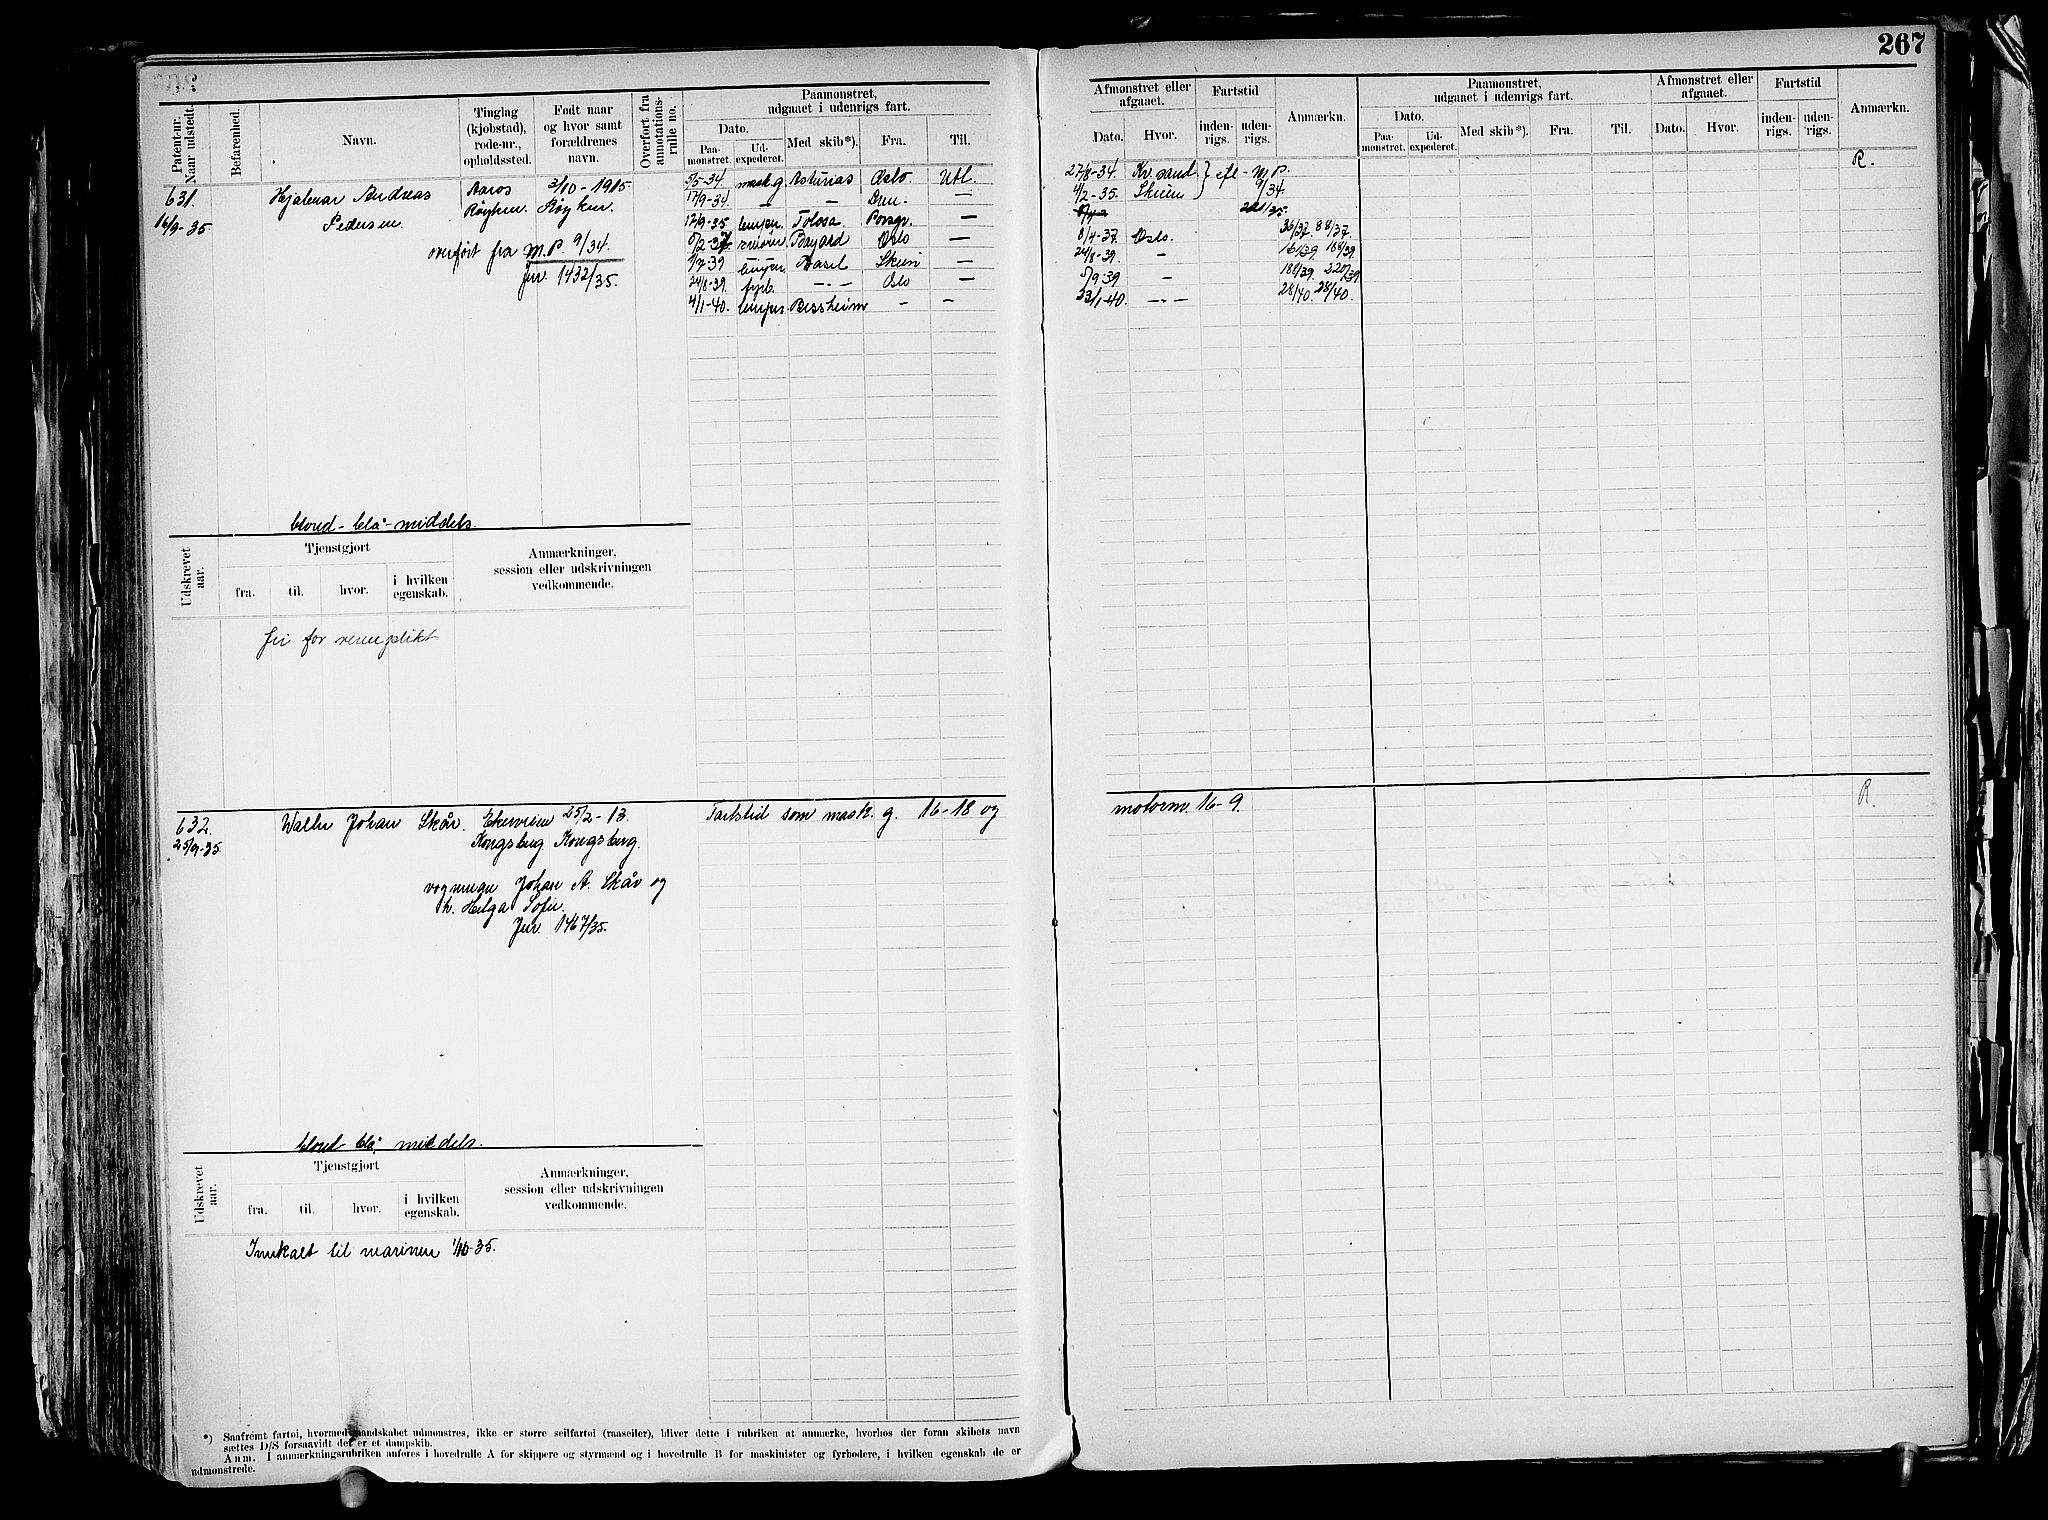 267
Patent-nr. Naar udstedt.
Befarenhed.
Navn.
Tinglag (kjøbstad), rode-nr., opholdssted.
Født naar og hvor samt forældrenes navn.
Overført fra annotations-rulle no.
Paamønstret, udgaaet i udenrigs fart.
Dato.
Paa-mønstret.
Ud-expederet.
Med skib*).
Fra.
Til.
Afmønstret eller afgaaet.
Dato.
Hvor.
Fartstid
inden-rigs.
uden-rigs.
Anmærkn.
Paamønstret, udgaaet i udenrigs fart.
Dato.
Paa-mønstret.
Ud-expederet.
Med skib*).
Fra.
Til.
Afmønstret eller afgaaet.
Dato.
Hvor.
Fartstid
inden-rigs.
uden-rigs.
Anmærkn.
631. Hjalmar Andreas Aaros 3/10-1915
16/9-35 Pedersen Røyken. Røyken.
overført fra M.P 9/34.
Jnr. 1432/35.
5/5-34 mask.g. Asturias Oslo. Utl.
17/9-34. — — Dm. —
17/9-35 Tolosa. Porsgr. —
5/2-37 Oslo —
1/7-39 Basel Skien —
24/8-39. fyrb. —"— Oslo —
4/1-40. Bessheim — —
27/8-34. Kr.sand } efl - M.P. R.
4/2-35. Skien } 9/34.
8/4-37. Oslo. 36/37. 88/37.
24/8-39. — 161/39. 188/39.
5/9-39 — 188/39. 220/39
23/1-40. —"— 28/40. 28/40.
blond - blå - middels.
Udskrevet aar.
Tjenstgjort
fra.
til.
hvor.
i hvilken egenskab.
Anmærkninger, session eller udskrivningen vedkommende.
fri for verneplikt
632. Johan Skår. 25/2-13. Fartstid som mask. g. 16-18 og motorm. 16-9. R.
25/9-35. Kongsberg Kongsberg.
Johan A. Skår og
h. Helga Sofie.
Jnr. 1467/35.
blond blå, middels.
Udskrevet aar.
Tjenstgjort
fra.
til.
hvor.
i hvilken egenskab.
Anmærkninger, session eller udskrivningen vedkommende.
Innkalt til marinen 1/10-35.
*) Saafremt fartøi, hvormed mandskabet udmønstres, ikke er større seilfartøi (raaseiler), bliver dette i rubriken at anmærke, hvorhos der foran skibets navn
sættes D/S forsaavidt det er et dampskib.
Anm. I anmærkningsrubriken anføres i hovedrulle A for skippere og styrmænd og i hovedrulle B for maskinister og fyrbødere, i hvilken egenskab de er
udmønstrede.